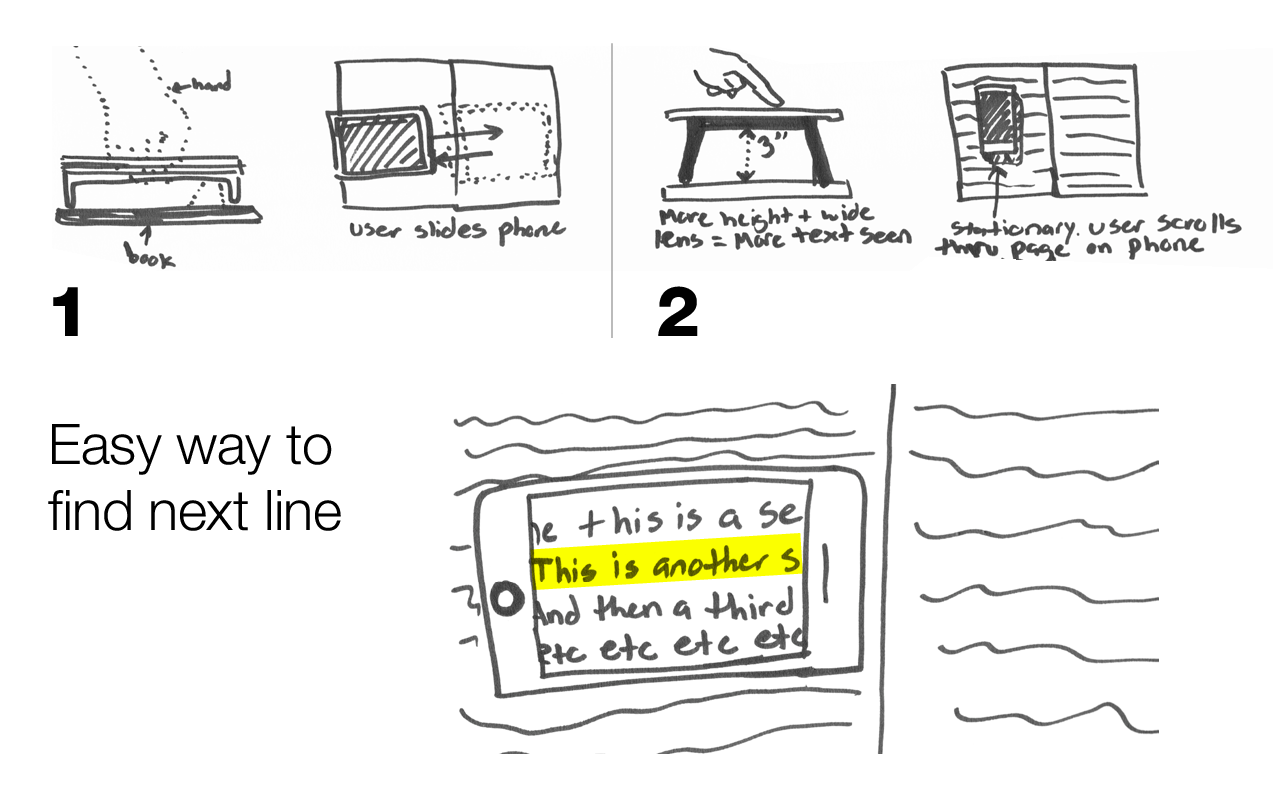 hand
book
user slides phone
1
3"
More height + wide
lens = More text seen
stationary. user scrolls
thru page on phone
2
Easy way to
find next line
ne this is a se
This is another s
And then a third
etc etc etc etc